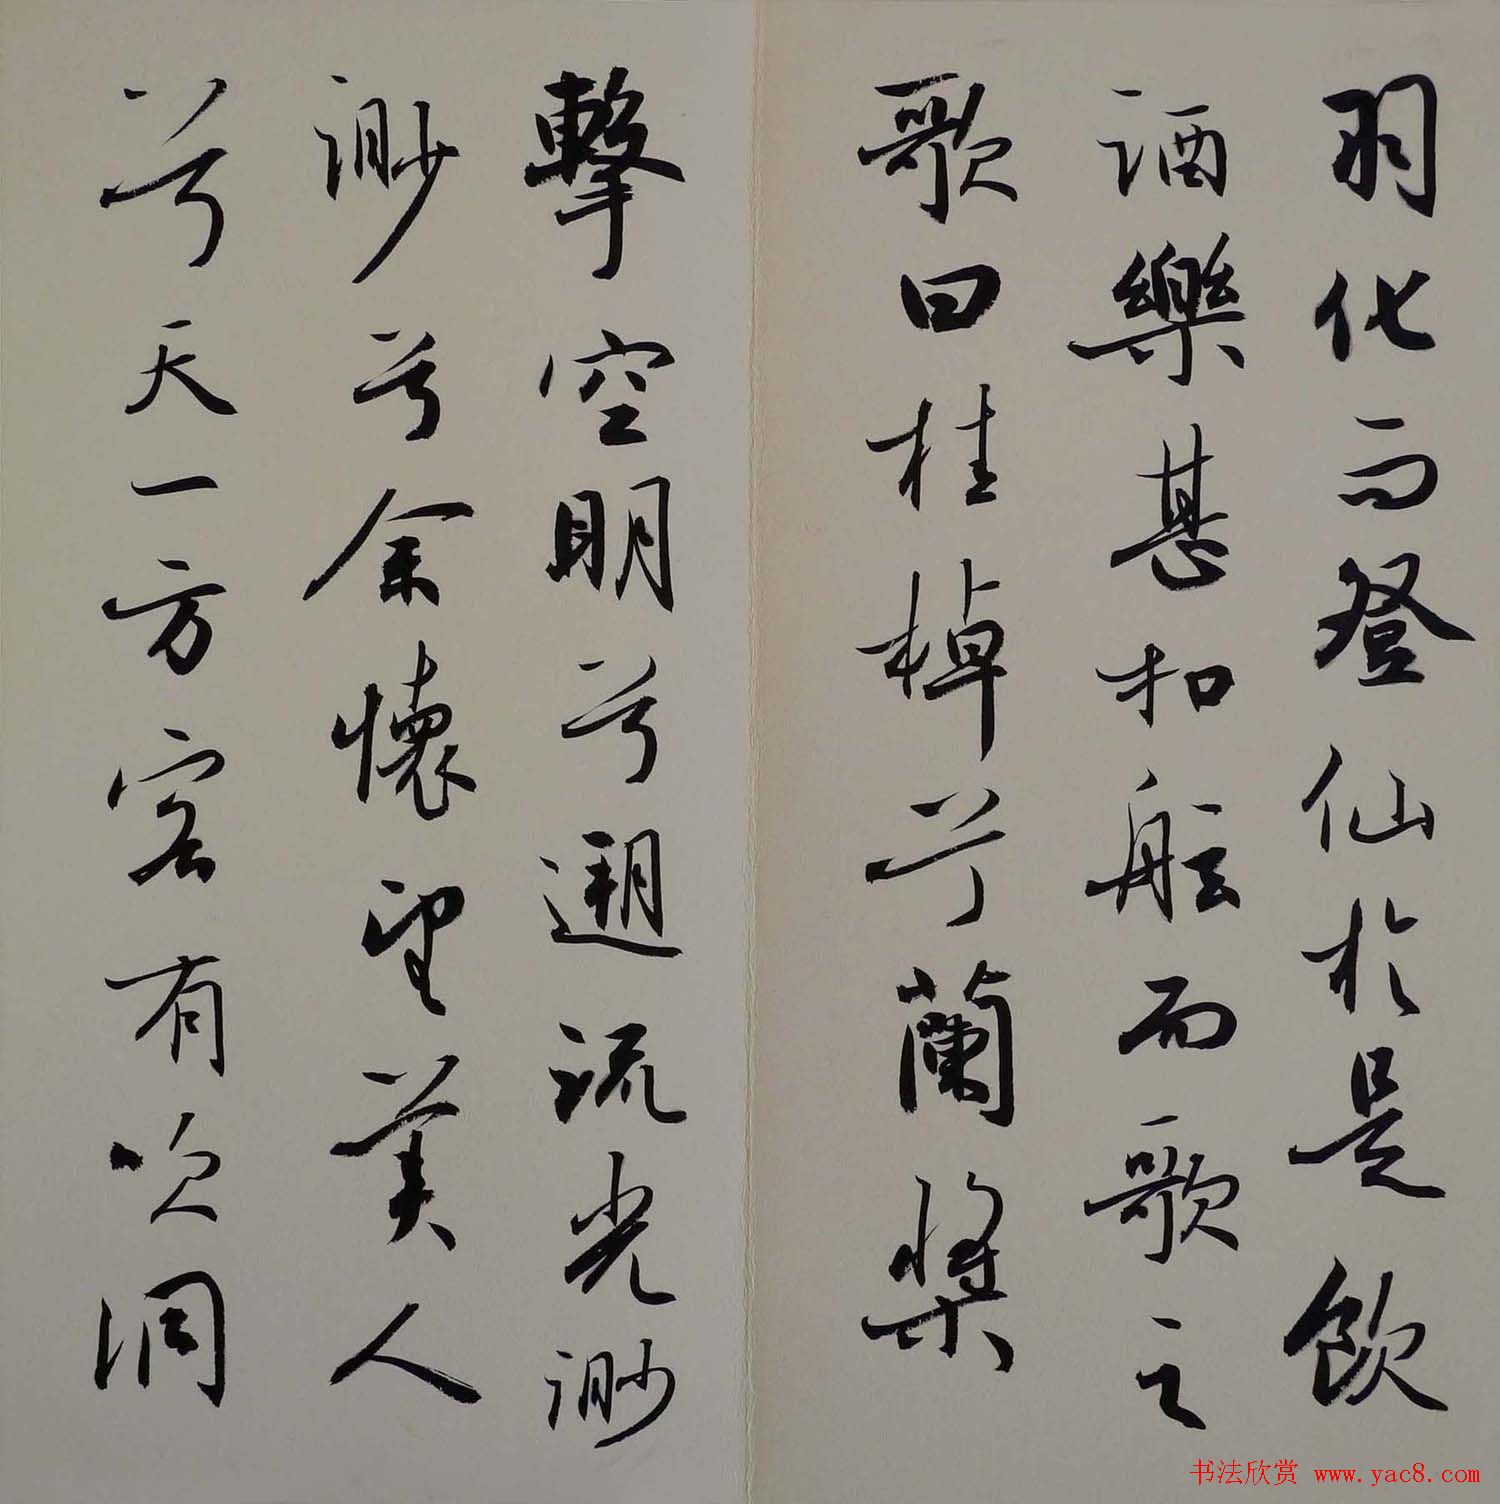 羽化而登仙於是飲
酒樂甚扣舷而歌之
歌曰桂棹兮蘭槳
擊空明兮遡流光渺
渺兮余懷望美人
兮天一方客有吹洞
书法欣赏 www.yac8.com